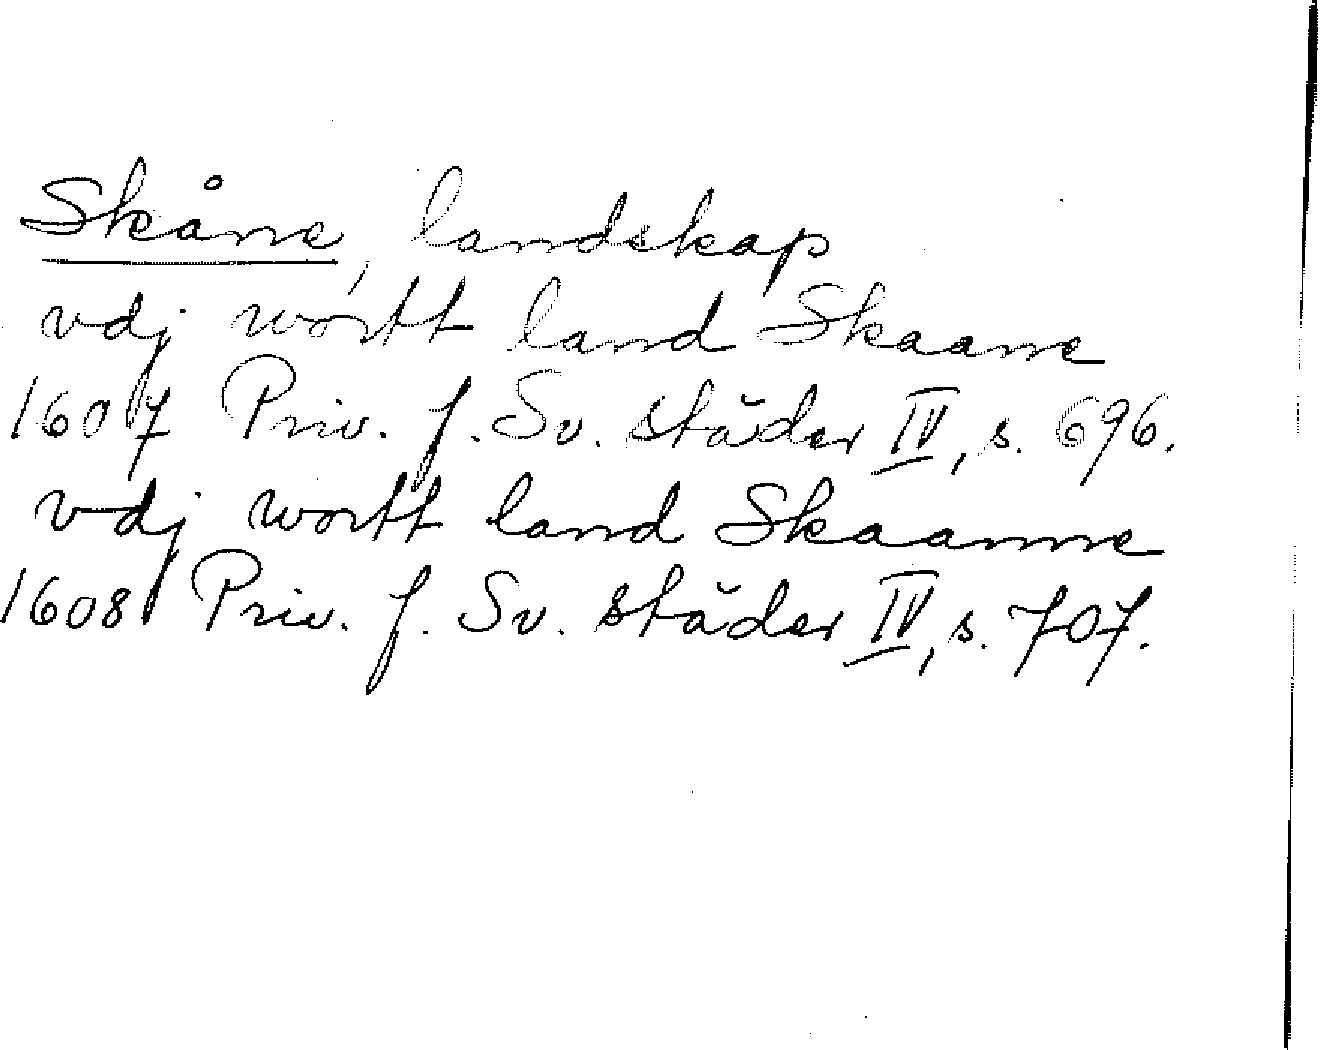 Skåne, landskap
vdj wortt land Skaane
1607 Priv. f. Sv. städer IV, s. 696.
vdj wortt land Skaanne
1608 Priv. f. Sv. städer IV, s. 707.